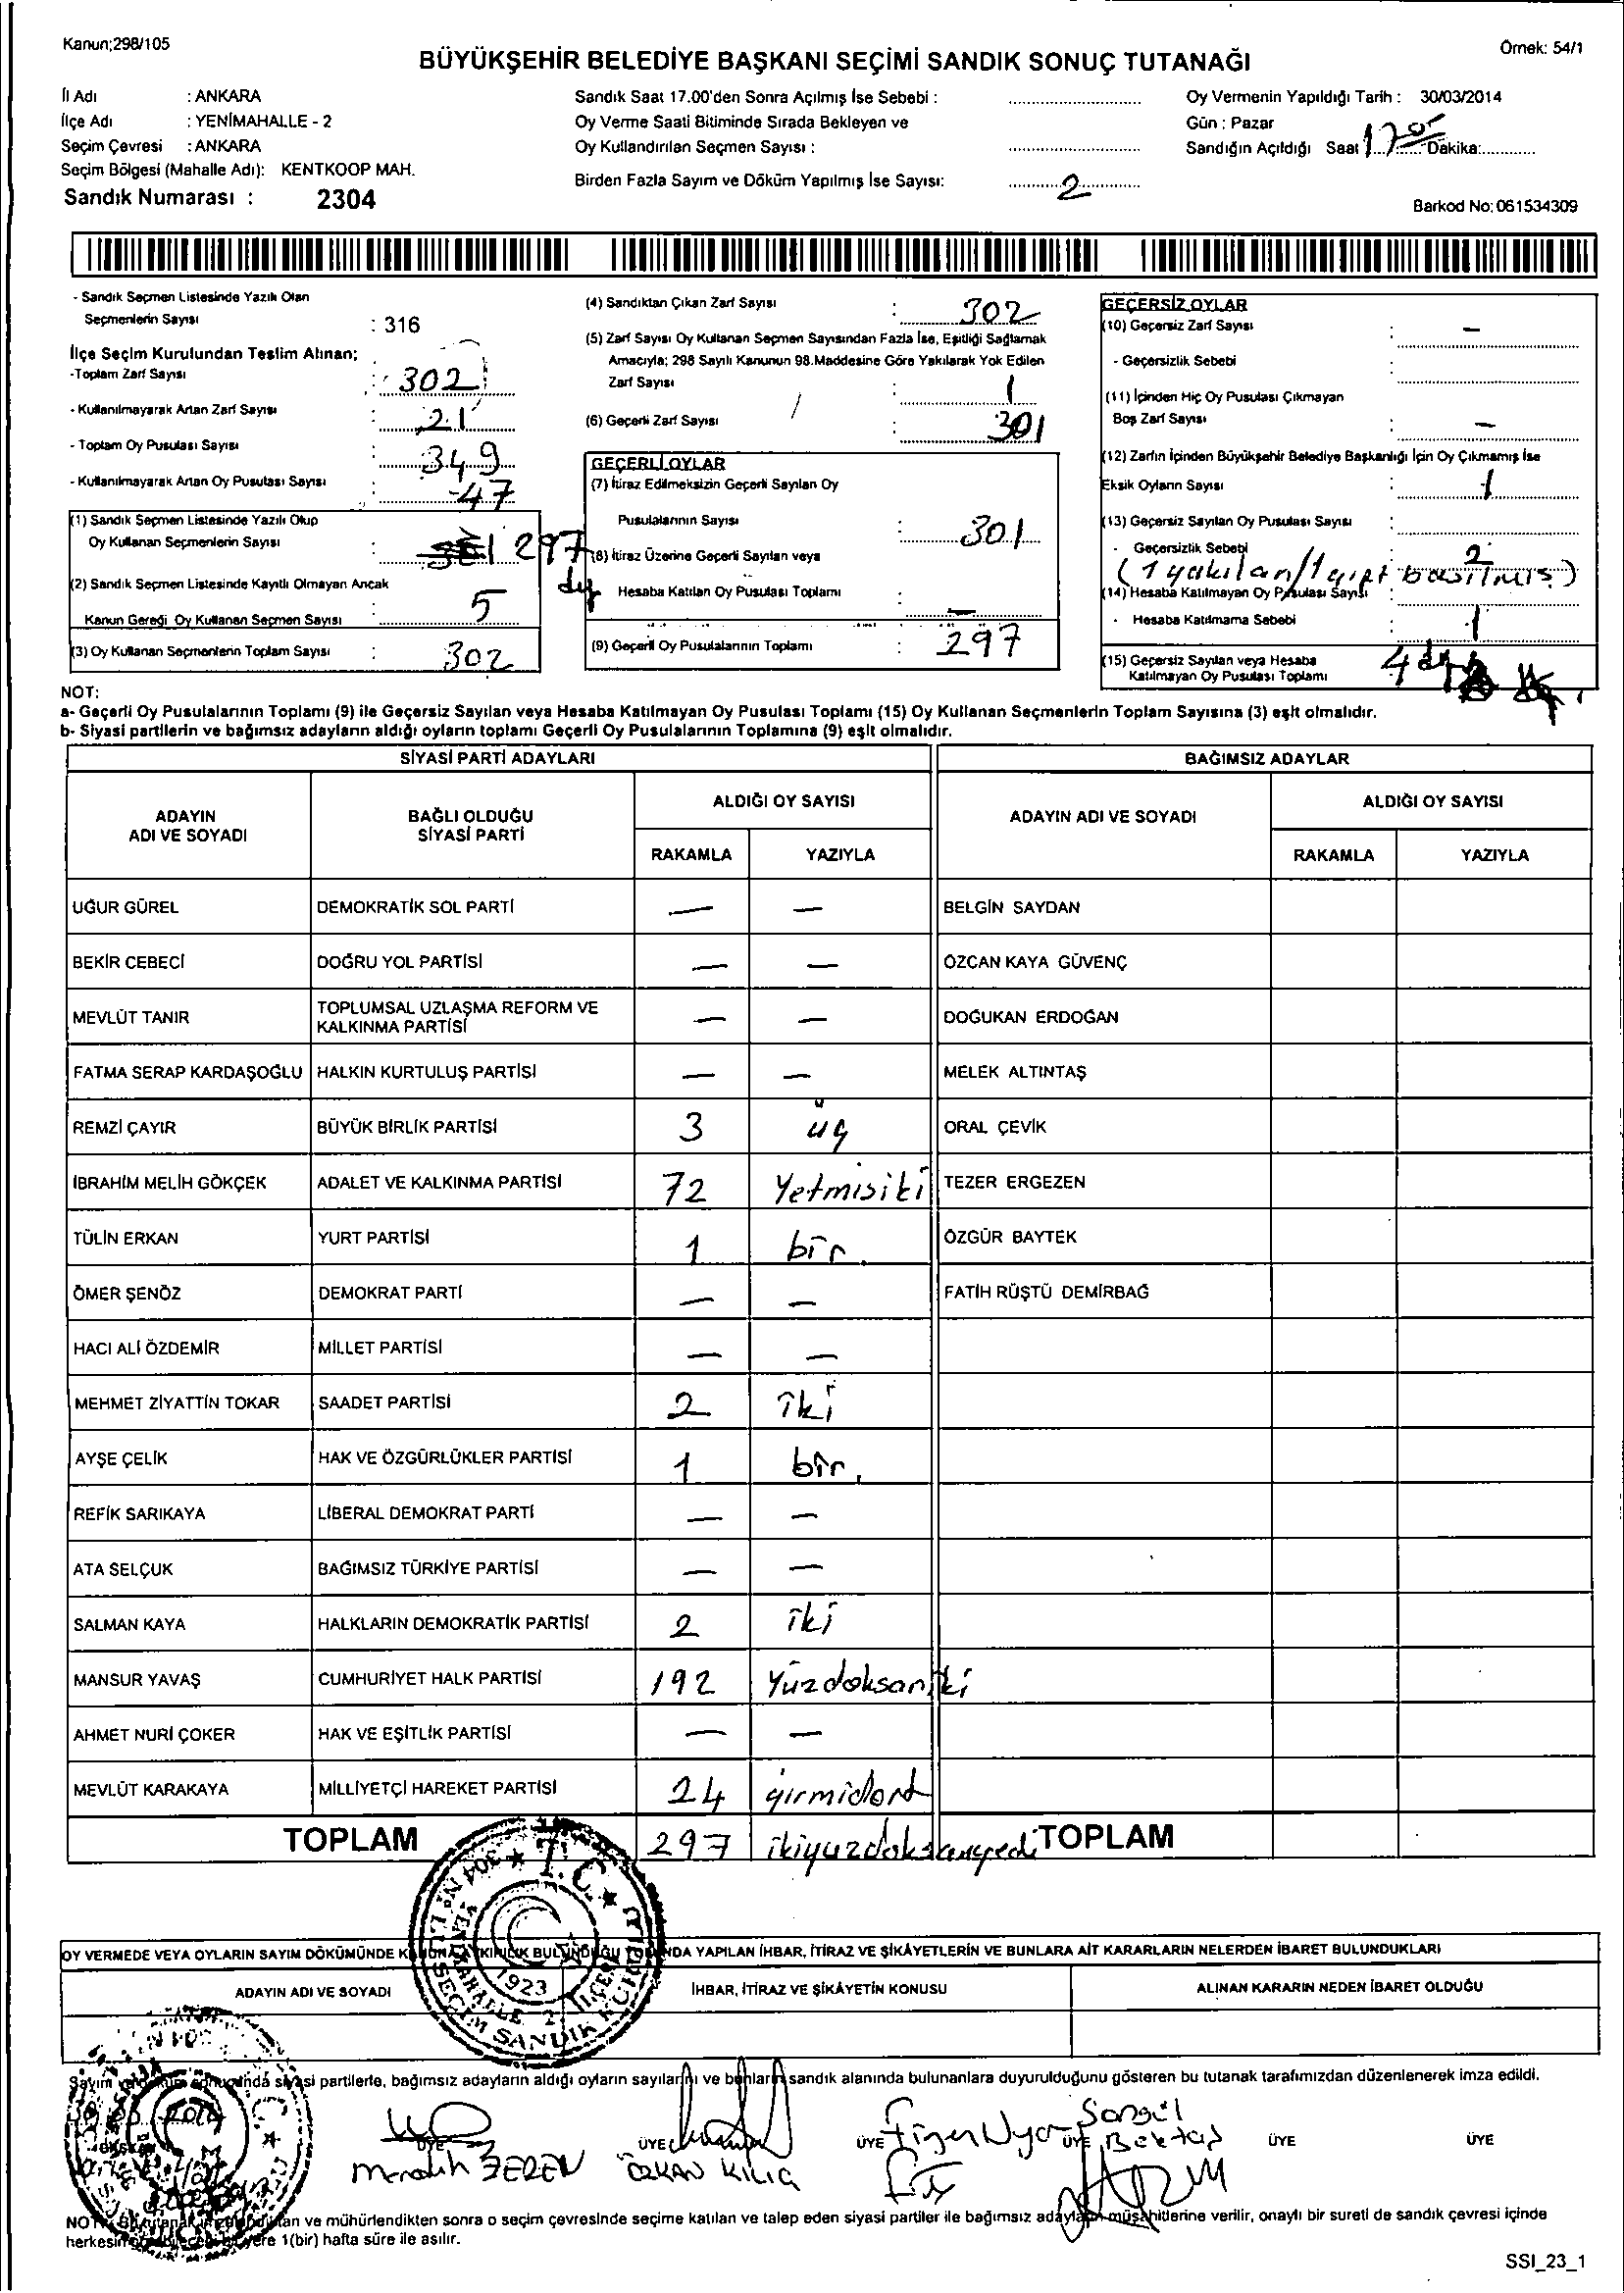 Kanun;298/105
Örnek: 54/1
BÜYÜKŞEHİR BELEDİYE BAŞKANI SEÇİMİ SANDIK SONUÇ TUTANAĞI
İl Adı : ANKARA
İlçe Adı : YENİMAHALLE - 2
Seçim Çevresi : ANKARA
Seçim Bölgesi (Mahalle Adı): KENTKOOP MAH.
Sandık Numarası : 2304
Sandık Saat 17.00'den Sonra Açılmış İse Sebebi :
Oy Verme Saati Bitiminde Sırada Bekleyen ve
Oy Kullandırılan Seçmen Sayısı :
Birden Fazla Sayım ve Döküm Yapılmış İse Sayısı: 2
Oy Vermenin Yapıldığı Tarih : 30/03/2014
Gün : Pazar
Sandığın Açıldığı Saat 1705 Dakika:
Barkod No: 061534309
- Sandık Seçmen Listesinde Yazılı Olan
Seçmenlerin Sayısı : 316
İlçe Seçim Kurulundan Teslim Alınan;
-Toplam Zarf Sayısı : 302
- Kullanılmayarak Artan Zarf Sayısı : 21
- Toplam Oy Pusulası Sayısı : 349
- Kullanılmayarak Artan Oy Pusulası Sayısı : -47
(1) Sandık Seçmen Listesinde Yazılı Olup
Oy Kullanan Seçmenlerin Sayısı : 297
(2) Sandık Seçmen Listesinde Kayıtlı Olmayan Ancak
Kanun Gereği Oy Kullanan Seçmen Sayısı : 5
(3) Oy Kullanan Seçmenlerin Toplam Sayısı : 302
(4) Sandıktan Çıkan Zarf Sayısı : 302
(5) Zarf Sayısı Oy Kullanan Seçmen Sayısından Fazla İse, Eşitliği Sağlamak
Amacıyla; 298 Sayılı Kanunun 98.Maddesine Göre Yakılarak Yok Edilen
Zarf Sayısı : 1
(6) Geçerli Zarf Sayısı : 301
GEÇERLİ OYLAR
(7) İtiraz Edilmeksizin Geçerli Sayılan Oy
Pusulalarının Sayısı : 301
(8) İtiraz Üzerine Geçerli Sayılan veya
Hesaba Katılan Oy Pusulası Toplamı : —
(9) Geçerli Oy Pusulalarının Toplamı : 297
GEÇERSİZ OYLAR
(10) Geçersiz Zarf Sayısı : —
- Geçersizlik Sebebi :
(11) İçinden Hiç Oy Pusulası Çıkmayan
Boş Zarf Sayısı : —
(12) Zarfın İçinden Büyükşehir Belediye Başkanlığı İçin Oy Çıkmamış İse
Eksik Oyların Sayısı : 1
(13) Geçersiz Sayılan Oy Pusulası Sayısı : 2
- Geçersizlik Sebebi
(1 yakılan/1 çift basılmış)
(14) Hesaba Katılmayan Oy Pusulası Sayısı :
- Hesaba Katılmama Sebebi : 1
(15) Geçersiz Sayılan veya Hesaba
Katılmayan Oy Pusulası Toplamı 4
NOT:
a- Geçerli Oy Pusulalarının Toplamı (9) ile Geçersiz Sayılan veya Hesaba Katılmayan Oy Pusulası Toplamı (15) Oy Kullanan Seçmenlerin Toplam Sayısına (3) eşit olmalıdır.
b- Siyasi partilerin ve bağımsız adayların aldığı oyların toplamı Geçerli Oy Pusulalarının Toplamına (9) eşit olmalıdır.
SİYASİ PARTİ ADAYLARI BAĞIMSIZ ADAYLAR
ADAYIN ADI VE SOYADI BAĞLI OLDUĞU SİYASİ PARTİ ALDIĞI OY SAYISI ADAYIN ADI VE SOYADI ALDIĞI OY SAYISI
RAKAMLA YAZIYLA RAKAMLA YAZIYLA
UĞUR GÜREL DEMOKRATİK SOL PARTİ — — BELGİN SAYDAN
BEKİR CEBECİ DOĞRU YOL PARTİSİ — — ÖZCAN KAYA GÜVENÇ
MEVLÜT TANIR TOPLUMSAL UZLAŞMA REFORM VE KALKINMA PARTİSİ — — DOĞUKAN ERDOĞAN
FATMA SERAP KARDAŞOĞLU HALKIN KURTULUŞ PARTİSİ — — MELEK ALTINTAŞ
REMZİ ÇAYIR BÜYÜK BİRLİK PARTİSİ 3 üç ORAL ÇEVİK
İBRAHİM MELİH GÖKÇEK ADALET VE KALKINMA PARTİSİ 72 Yetmisiki TEZER ERGEZEN
TÜLİN ERKAN YURT PARTİSİ 1 bir. ÖZGÜR BAYTEK
ÖMER ŞENÖZ DEMOKRAT PARTİ — — FATİH RÜŞTÜ DEMİRBAĞ
HACI ALİ ÖZDEMİR MİLLET PARTİSİ — —
MEHMET ZİYATTİN TOKAR SAADET PARTİSİ 2 iki
AYŞE ÇELİK HAK VE ÖZGÜRLÜKLER PARTİSİ 1 bir.
REFİK SARIKAYA LİBERAL DEMOKRAT PARTİ — —
ATA SELÇUK BAĞIMSIZ TÜRKİYE PARTİSİ — —
SALMAN KAYA HALKLARIN DEMOKRATİK PARTİSİ 2 iki
MANSUR YAVAŞ CUMHURİYET HALK PARTİSİ 192 Yüzdoksaniki
AHMET NURİ ÇOKER HAK VE EŞİTLİK PARTİSİ — —
MEVLÜT KARAKAYA MİLLİYETÇİ HAREKET PARTİSİ 24 yirmidört
TOPLAM 297 ikiyuzdoksanyedi TOPLAM
OY VERMEDE VEYA OYLARIN SAYIM DÖKÜMÜNDE KANUNA AYKIRILIK BULUNDUĞU YOLUNDA YAPILAN İHBAR, İTİRAZ VE ŞİKÂYETLERİN VE BUNLARA AİT KARARLARIN NELERDEN İBARET BULUNDUKLARI
ADAYIN ADI VE SOYADI İHBAR, İTİRAZ VE ŞİKÂYETİN KONUSU ALINAN KARARIN NEDEN İBARET OLDUĞU
T.C. 1923
Sayım siyasi partilerle, bağımsız adayların aldığı oyların sayılarını ve bunların sandık alanında bulunanlara duyurulduğunu gösteren bu tutanak tarafımızdan düzenlenerek imza edildi.
ÜYE ÜYE ÜYE ÜYE ÜYE ÜYE
ÖZKAN KILIÇ Songül Bektaş
NOT: ve mühürlendikten sonra o seçim çevresinde seçime katılan ve talep eden siyasi partiler ile bağımsız adayların müşahitlerine verilir, onaylı bir sureti de sandık çevresi içinde
1(bir) hafta süre ile asılır.
SSI_23_1